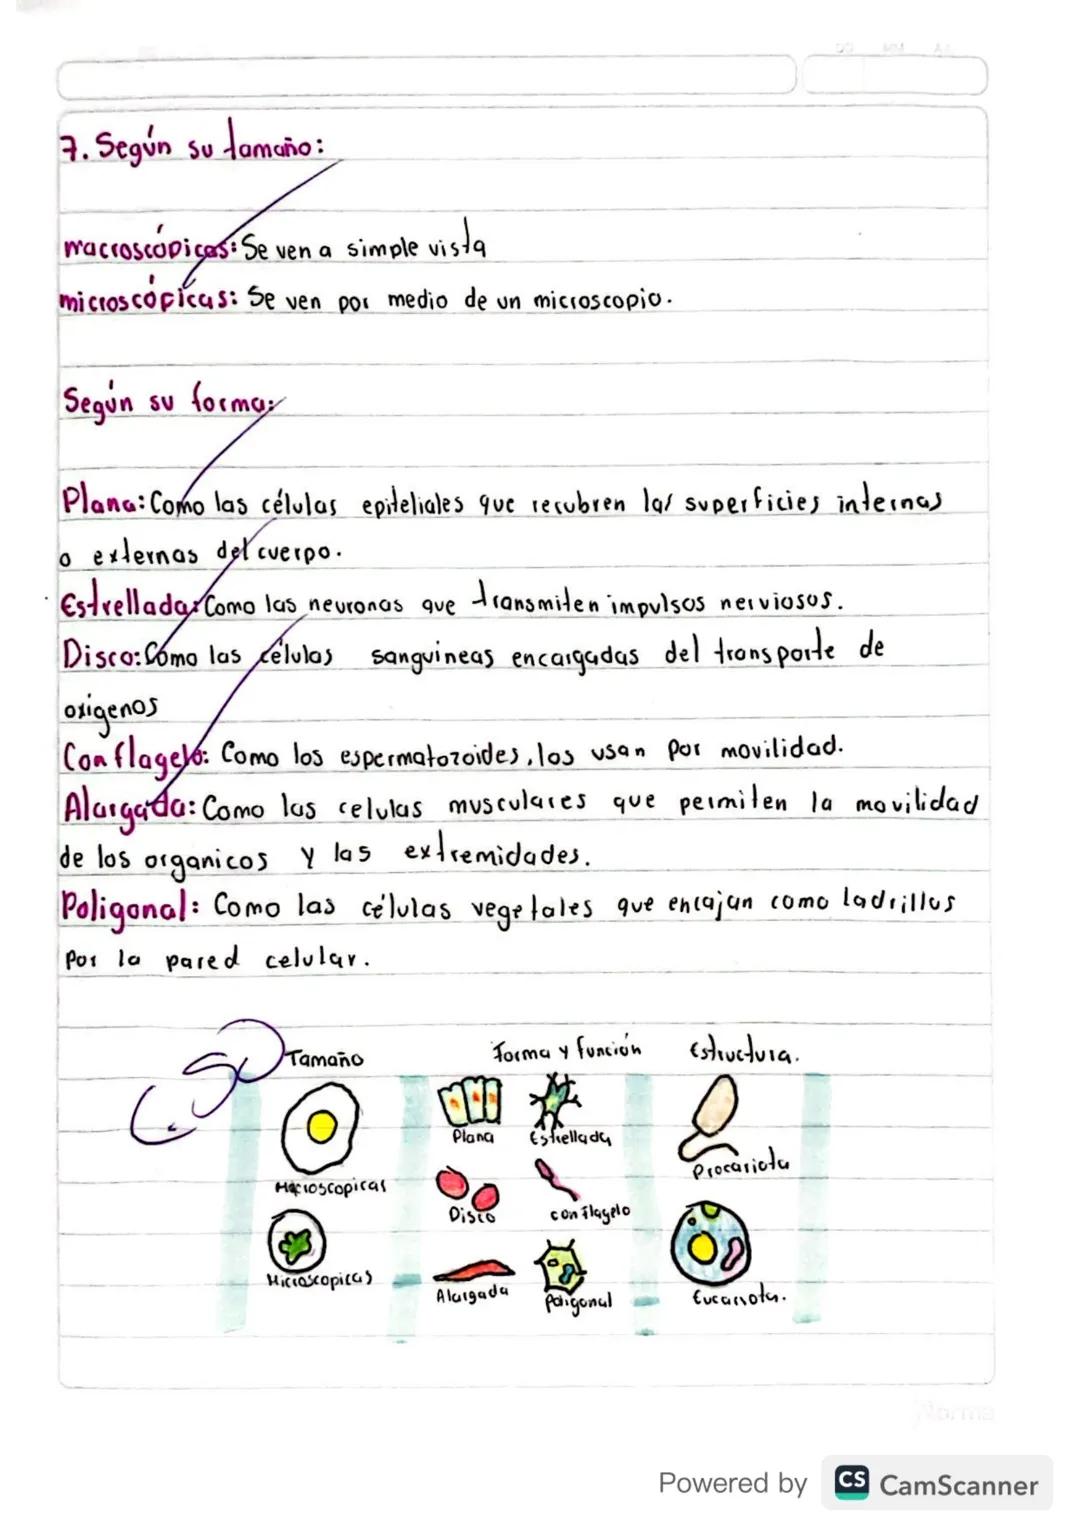 7. Según su tamaño:
macroscópicas: Se ven a simple vista
microscópicas: Se ven por medio de un microscopio.
Según su forma:
Plana: Como las células epiteliales que recubren las superficies internas
o externas del cuerpo.
Estrellada: Como las neuronas que transmiten impulsos nerviosos.
Disco: Como las células sanguineas encargadas del transporte de
oxigenos
Con flagelo: Como los espermatozoides, los usan por movilidad.
Alargada: Como las celulas musculares que permiten la movilidad
de los organicos y las extremidades.
Poligonal: Como las células vegetales que encajan como ladrillos
por la pared celular.
Tamaño Forma y función Estructura.
Plana Estrellada
Procariota
Macroscopicas
Disco con flagelo
Microscopicas
Alargada Poligonal Eucariota.
Norma
Powered by CS CamScanner